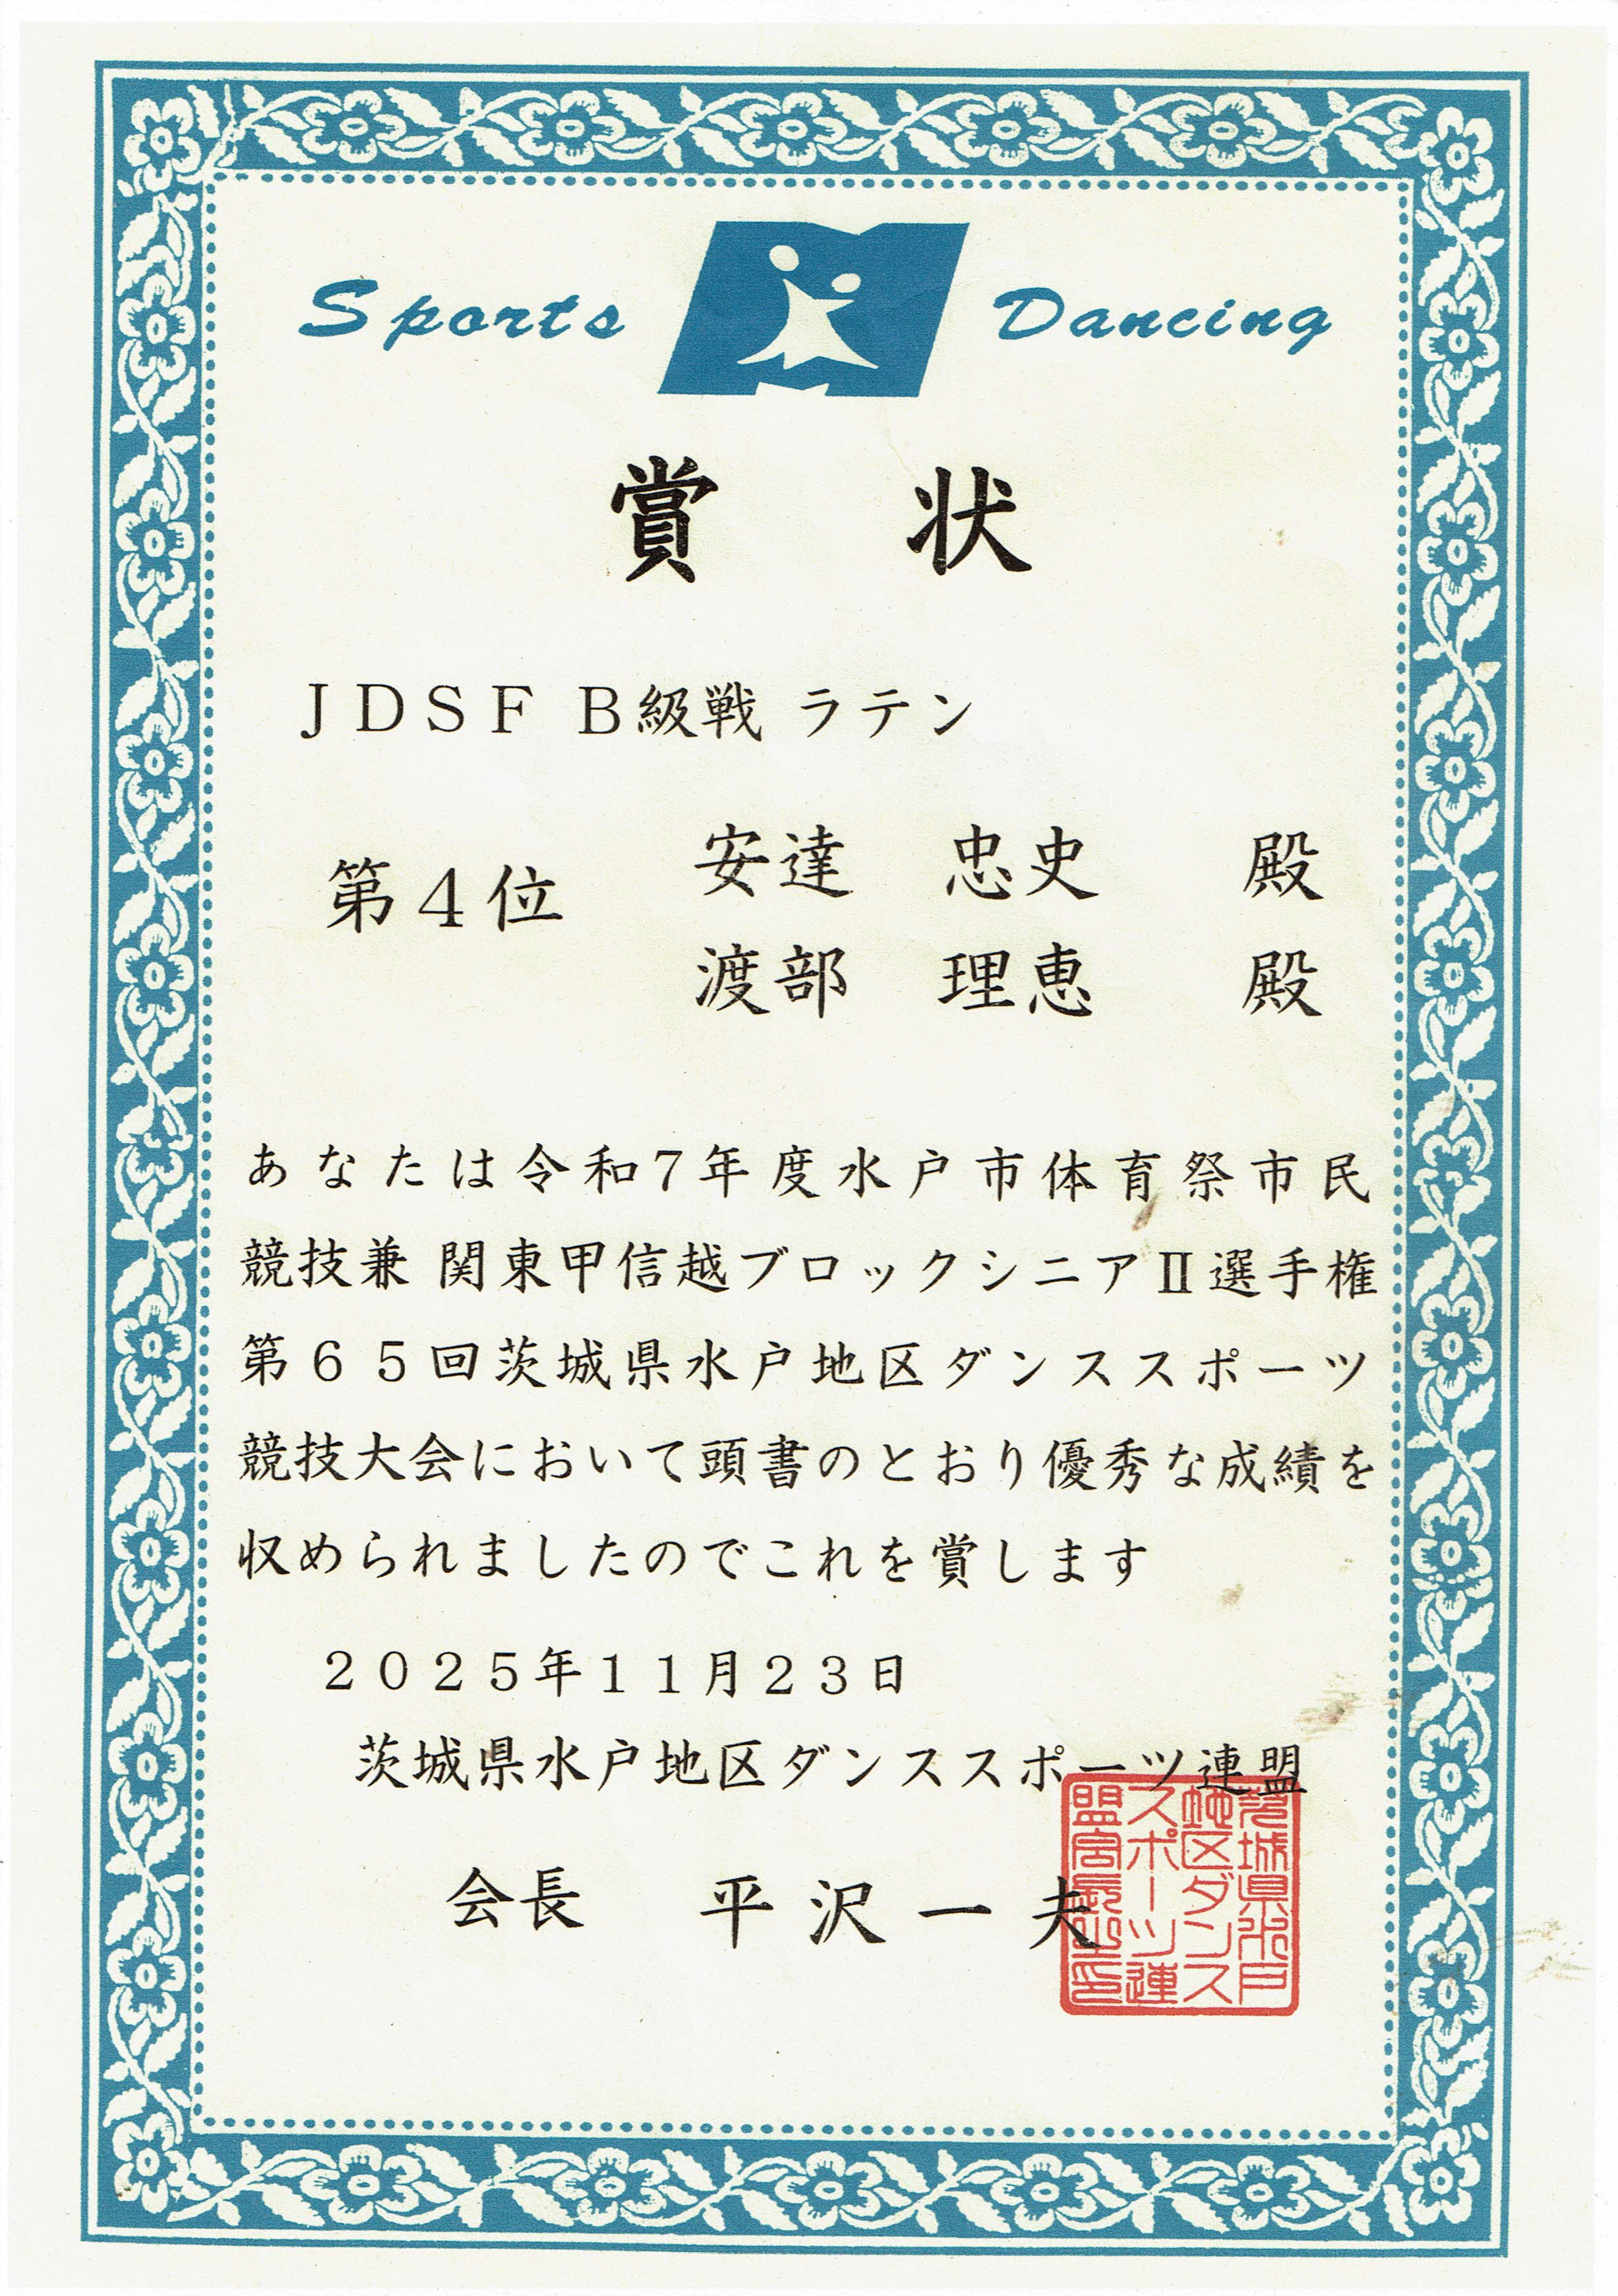 Sports Dancing
賞状
JDSF B級戦 ラテン
第4位
安達 忠史 殿
渡部 理恵 殿
あなたは令和7年度水戸市体育祭市民
競技兼 関東甲信越ブロックシニアⅡ選手権
第65回茨城県水戸地区ダンススポーツ
競技大会において頭書のとおり優秀な成績を
収められましたのでこれを賞します
2025年11月23日
茨城県水戸地区ダンススポーツ連盟
会長 平沢一夫
茨城県水戸
地区ダンス
スポーツ連
盟会長之印